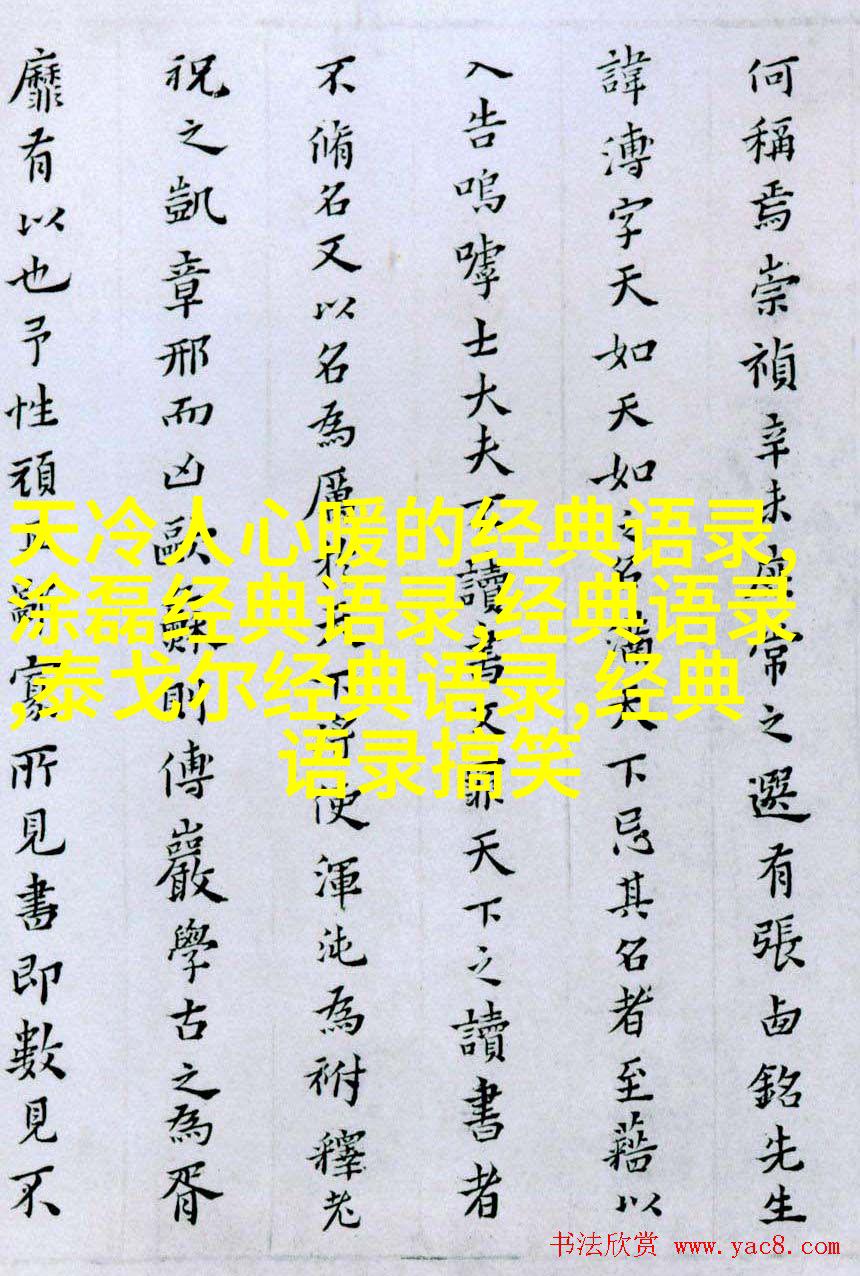 何稱焉崇禎辛未庶常之選有張卣銘先生
諱溥字天如天如之名滿天下忌其名者至藉以
入告嗚嘑士大夫不讀書又罪天下之讀書者
不脩名又以名為厲天下使渾沌為祔釋老
祝之凱章邢而凶歐蘇則傅巖學古之為胥
靡有以也予性頑寡所見書即數見不
天冷人心暖的经典语录,
涂磊经典语录,经典语录
,泰戈尔经典语录,经典
语录搞笑
书法欣赏 www.yac8.com